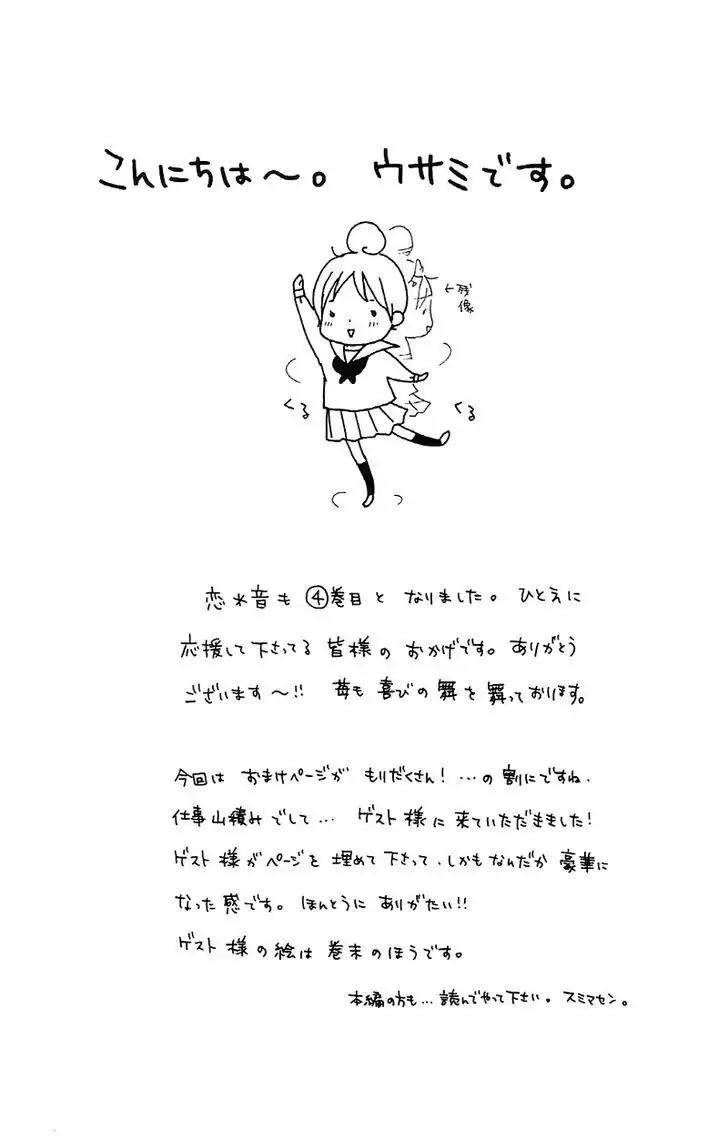 こんにちは〜。 ウサミです。
←残像
くる
くる
恋水音も ④巻目と なりました。 ひとえに
応援して下さってる 皆様の おかげです。 ありがとう
ございます〜!! 苺も 喜びの舞を 舞っております。
今回は おまけページが もりだくさん! …の 割にですね、
仕事山積みでして… ゲスト様に 来ていただきました!
ゲスト様がページを 埋めて下さって、しかもなんだか 豪華に
なった感です。 ほんとうに ありがたい!!
ゲスト様の絵は 巻末のほうです。
本編の方も…読んでやって下さい。スミマセン。